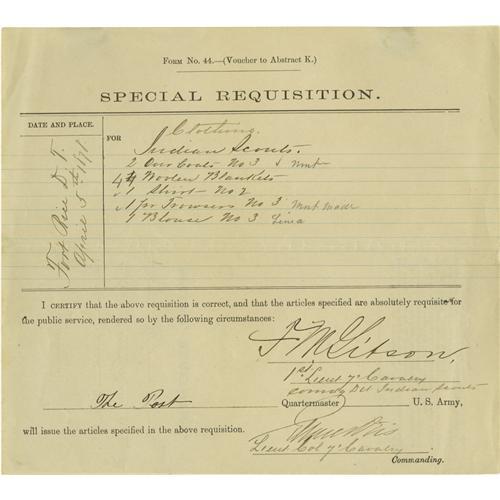 Form No. 44.—(Voucher to Abstract K.)
SPECIAL REQUISITION.
DATE AND PLACE.
Fort Rice D. T.
April 5th
FOR
Clothing
Indian Scouts.
2 Over Coats No 3
4 Woolen Blankets
1 Shirt No 2
1 pr Trowsers No 3 Mnt Made
1 Blouse No 3 Lined
I CERTIFY that the above requisition is correct, and that the articles specified are absolutely requisite for
the public service, rendered so by the following circumstances:
F M Gibson,
1st Lieut 7" Cavalry
Comdg Det Indian Scouts
The Post Quartermaster U. S. Army,
will issue the articles specified in the above requisition.
Lieut Col 7" Cavalry
Commanding.